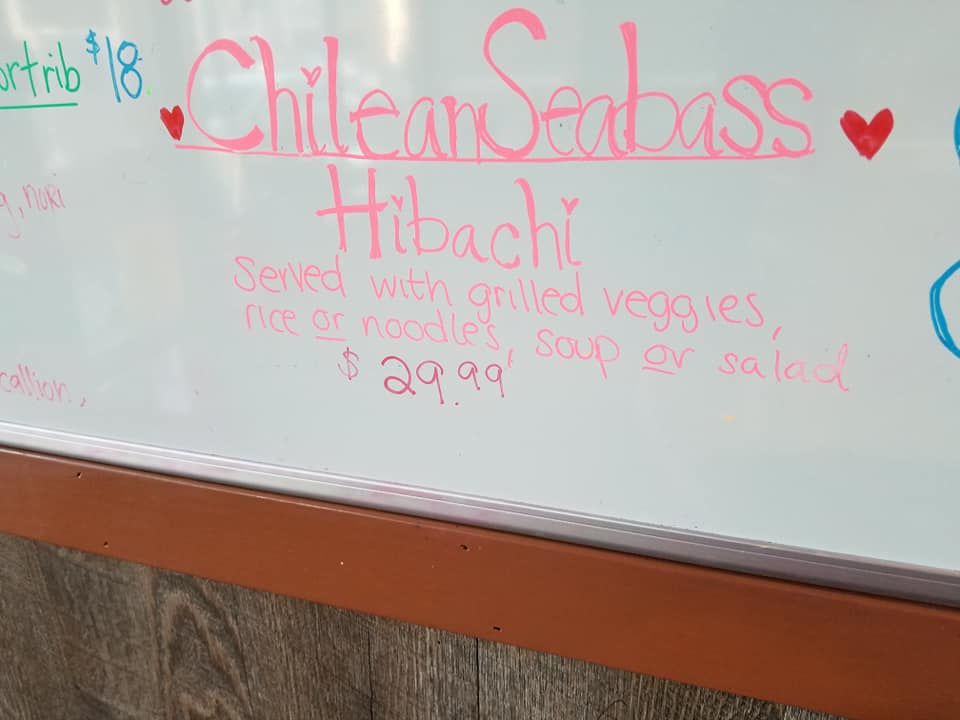 rib $18
Chilean Seabass
Hibachi
, nori
Served with grilled veggies,
rice or noodles, soup or salad
$ 29.99